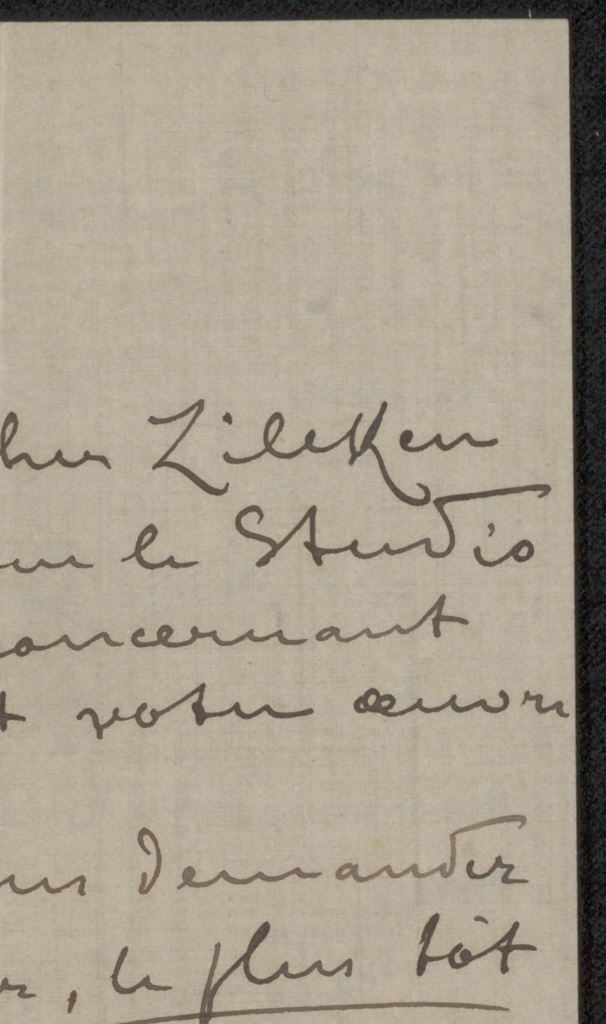 Zilcken
le Studio
concernant
votre œuvre
demander
, le plus tôt